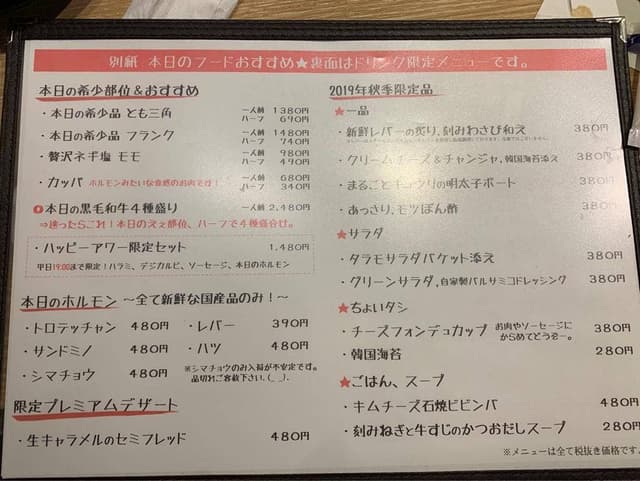 別紙 本日のフードおすすめ★裏面はドリンク限定メニューです。
本日の希少部位&おすすめ
・本日の希少品 とも三角 一人前 1380円
ハーフ 690円
・本日の希少品 フランク 一人前 1480円
ハーフ 740円
・贅沢ネギ塩 モモ 一人前 980円
ハーフ 490円
・カッパ ホルモンみたいな食感のお肉です! 一人前 680円
ハーフ 340円
本日の黒毛和牛4種盛り 一人前 2,480円
⇒迷ったらこれ!本日のえぇ部位、ハーフで4種盛合せ。
・ハッピーアワー限定セット 1,480円
平日19:00まで限定!ハラミ、デジカルビ、ソーセージ、本日のホルモン
本日のホルモン ~全て新鮮な国産品のみ!~
・トロテッチャン 480円 ・レバー 390円
・サンドミノ 480円 ・ハツ 480円
・シマチョウ 480円 ※シマチョウのみ入荷が不安定です。
品切れご容赦下さい。(_ _)。
限定プレミアムデザート
・生キャラメルのセミフレッド 480円
2019年秋季限定品
★一品
・新鮮レバーの炙り、刻みわさび和え 380円
・クリームチーズ&チャンジャ、韓国海苔添え 380円
・まるごとキュウリの明太子ボート 380円
・あっさり、モツぽん酢 380円
★サラダ
・タラモサラダバケット添え 380円
・グリーンサラダ、自家製バルサミコドレッシング 380円
★ちょいタシ
・チーズフォンデュカップ お肉やソーセージに
からめてどうぞー。 380円
・韓国海苔 280円
★ごはん、スープ
・キムチーズ石焼ビビンバ 480円
・刻みねぎと牛すじのかつおだしスープ 280円
※メニューは全て税抜き価格です。